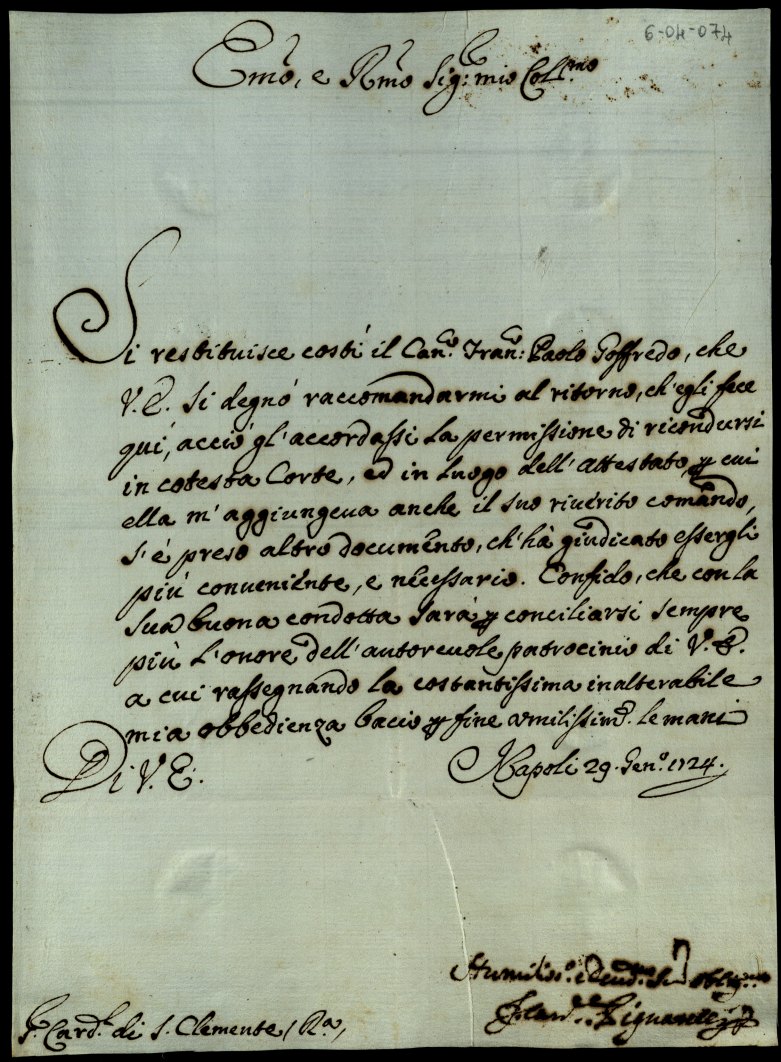 6-04-074
Emo, e Rmo Sig: mio Coll:mo
Si restituisce costí il Can.o Fran: Paolo Goffredo, che
V. E. si degnó raccomandarmi al ritorno, ch'egli fece
quí, acció gl'accordassi la permissione di ricondursi
in cotesta Corte, ed in luogo dell'attestato, p cui
ella m'aggiungeva anche il suo riverito comando,
s'é preso altro documento, ch'há giudicato essergli
piú conveniénte, e necessario. Confido, che con la
sua buona condotta sará p conciliarsi sempre
piú l'onore dell'autorevole patrocinio di V. E.
a cui rassegnando la costantissima inalterabile
mia obbedienza bacio p fine umilissim.e le mani
Di V. E. Napoli 29. Gen.o 1724.
Humil.o e Deud.mo Ser oblig.mo
Card.
S.r Card.l di S. Clemente / Ra,